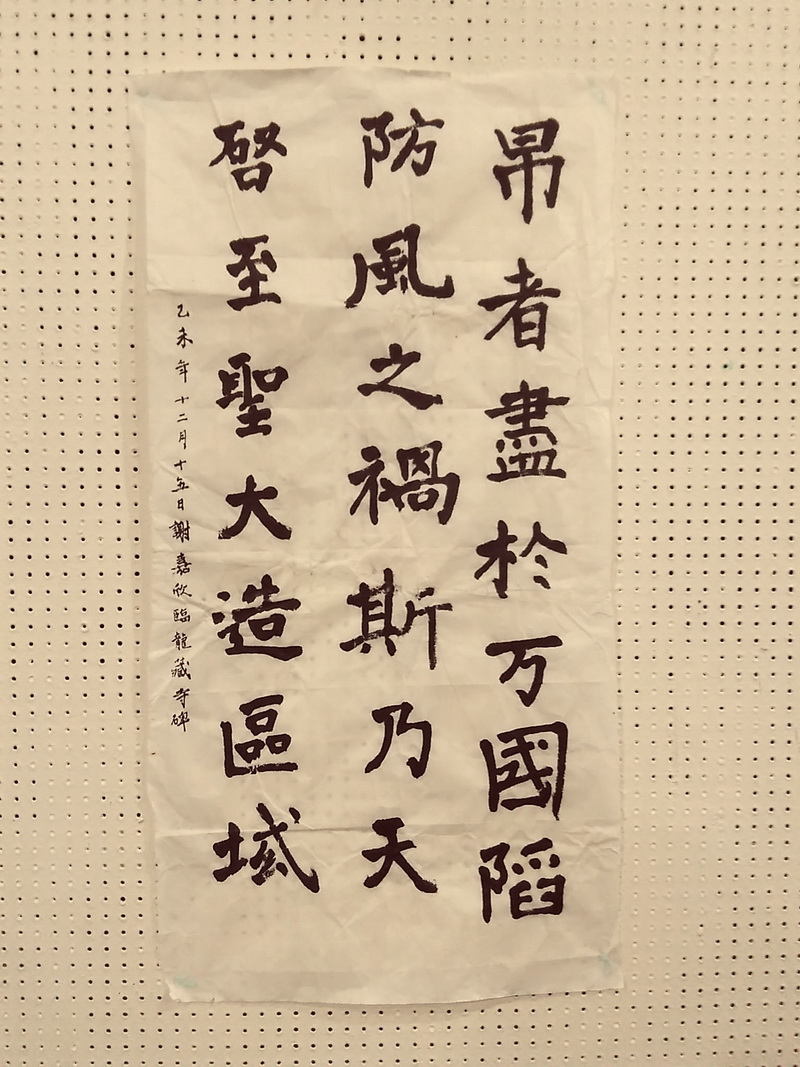 帛者盡於万國陷
防風之禍斯乃天
啓至聖大造區域
乙未年十二月十五日謝嘉欣臨龍藏寺碑